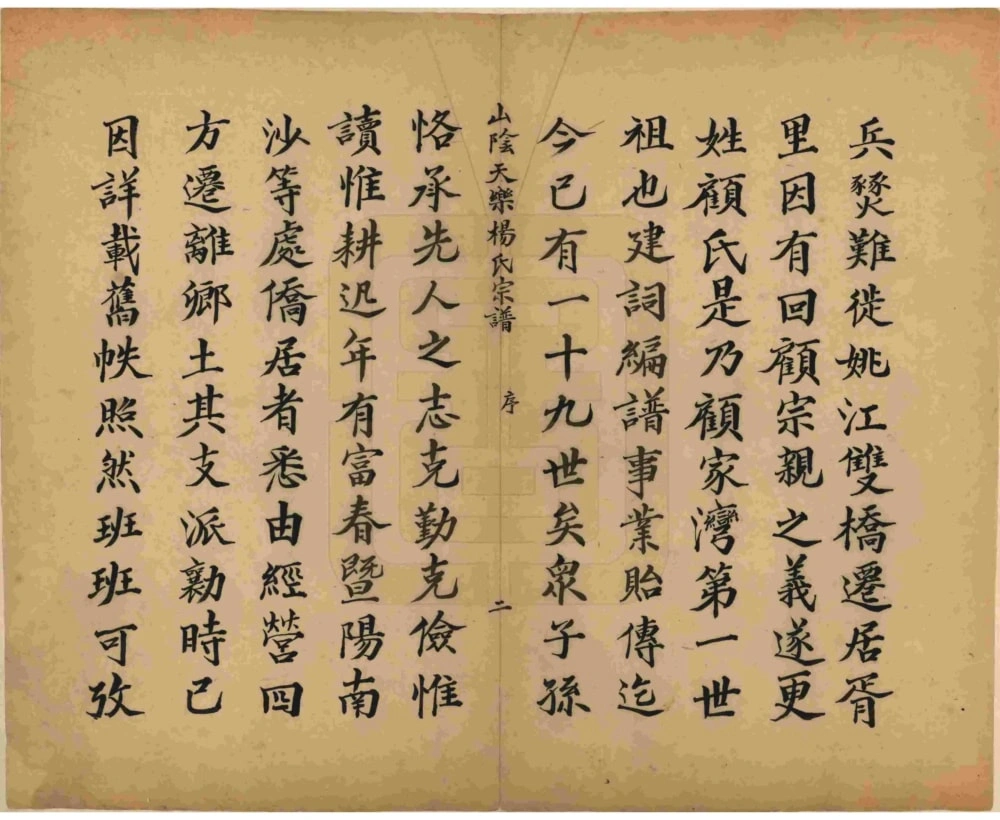 兵燹難徙姚江雙橋遷居胥
里因有回顧宗親之義遂更
姓顧氏是乃顧家灣第一世
祖也建詞編譜事業貽傳迄
今已有一十九世矣眾子孫
山陰天樂楊氏宗譜 序 二
恪承先人之志克勤克儉惟
讀惟耕迟年有富春暨陽南
沙等處僑居者悉由經營四
方遷離鄉土其支派勷時已
因詳載舊帙照然班班可攷